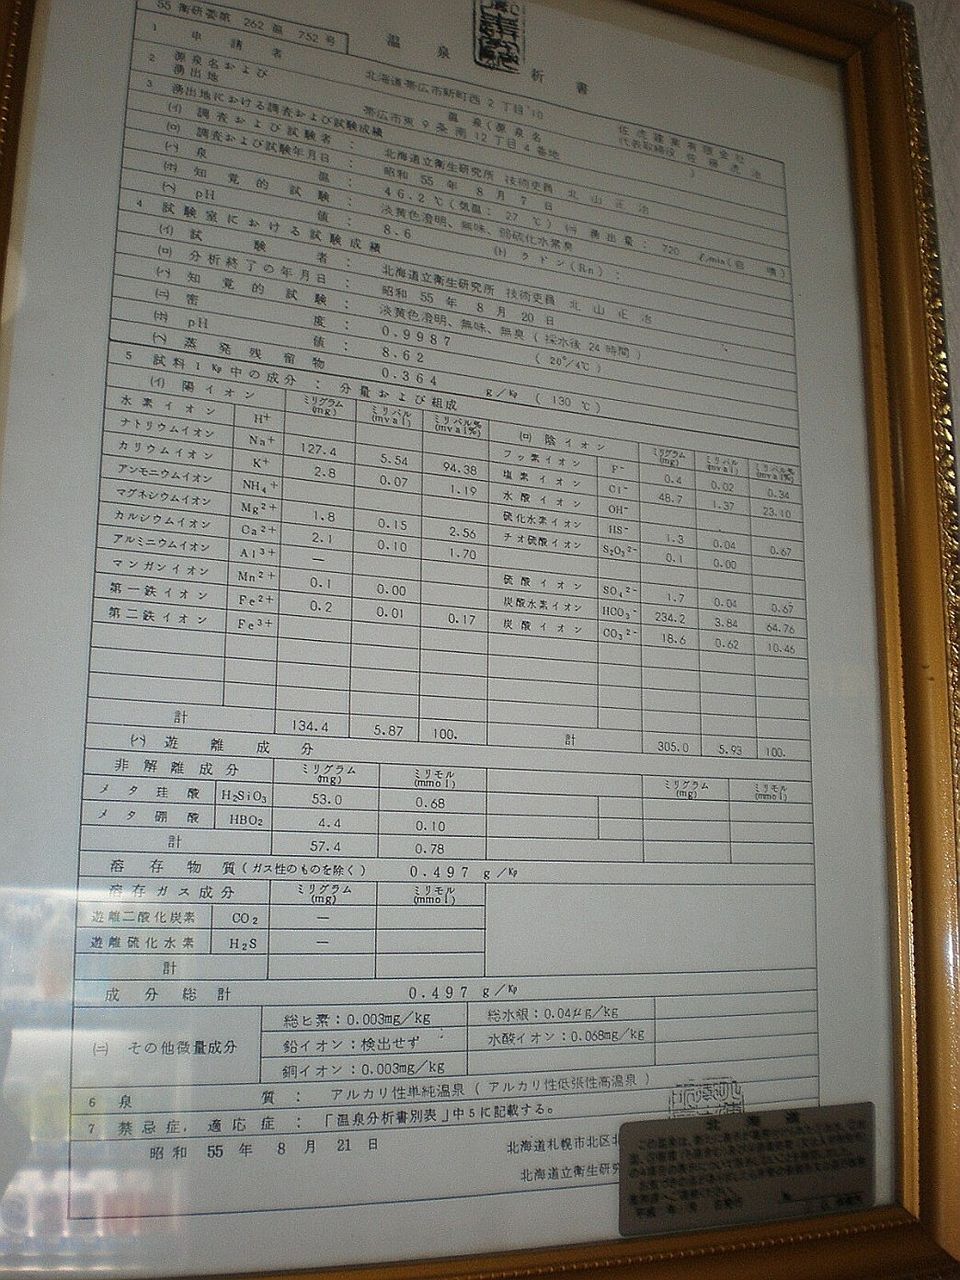 55 衛研委第 262 温 752 号
温泉 析書
1 申請者 北海道帯広市新町西2丁目10 佐虎建業有限会社
代表取締役 佐藤虎治
2 源泉名および湧出地 温泉(源泉名 )
帯広市東9条南12丁目4番地
3 湧出地における調査および試験成績
(イ) 調査および試験者: 北海道立衛生研究所 技術吏員 北山正治
(ロ) 調査および試験年月日: 昭和55年8月7日
(ハ) 泉温: 46.2℃(気温: 27℃) (ニ) 湧出量: 720 ℓ/min(自噴)
(ホ) 知覚的試験: 淡黄色澄明、無味、弱硫化水素臭
(ヘ) pH値: 8.6 (ト) ラドン(Rn):
4 試験室における試験成績
(イ) 試験者: 北海道立衛生研究所 技術吏員 北山正治
(ロ) 分析終了の年月日: 昭和55年8月20日
(ハ) 知覚的試験: 淡黄色澄明、無味、無臭(採水後24時間)
(ニ) 密度: 0.9987 (20°/4℃)
(ホ) pH値: 8.62
(ヘ) 蒸発残留物 0.364 g/Kp (130℃)
5 試料1Kp中の成分: 分量および組成
(イ) 陽イオン ミリグラム(mg) ミリバル(mval) ミリバル%(mval%) (ロ) 陰イオン ミリグラム(mg) ミリバル(mval) ミリバル%(mval%)
水素イオン H+ フッ素イオン F- 0.4 0.02 0.34
ナトリウムイオン Na+ 127.4 5.54 94.38 塩素イオン Cl- 48.7 1.37 23.10
カリウムイオン K+ 2.8 0.07 1.19 水酸イオン OH-
アンモニウムイオン NH4+ 硫化水素イオン HS- 1.3 0.04 0.67
マグネシウムイオン Mg2+ 1.8 0.15 2.56 チオ硫酸イオン S2O3 2- 0.1 0.00
カルシウムイオン Ca2+ 2.1 0.10 1.70
アルミニウムイオン Al3+ — 硫酸イオン SO4 2- 1.7 0.04 0.67
マンガンイオン Mn2+ 0.1 0.00 炭酸水素イオン HCO3- 234.2 3.84 64.76
第一鉄イオン Fe2+ 0.2 0.01 0.17 炭酸イオン CO3 2- 18.6 0.62 10.46
第二鉄イオン Fe3+
計 134.4 5.87 100. 計 305.0 5.93 100.
(ハ) 遊離成分
非解離成分 ミリグラム(mg) ミリモル(mmol) ミリグラム(mg) ミリモル(mmol)
メタ珪酸 H2SiO3 53.0 0.68
メタ硼酸 HBO2 4.4 0.10
計 57.4 0.78
溶存物質(ガス性のものを除く) 0.497 g/Kp
溶存ガス成分 ミリグラム(mg) ミリモル(mmol)
遊離二酸化炭素 CO2 —
遊離硫化水素 H2S —
計
成分総計 0.497 g/Kp
(ニ) その他微量成分 総ヒ素:0.003mg/kg 総水銀:0.04μg/kg
鉛イオン:検出せず 水酸イオン:0.068mg/kg
銅イオン:0.003mg/kg
6 泉質: アルカリ性単純温泉(アルカリ性低張性高温泉)
7 禁忌症, 適応症: 「温泉分析書別表」中5に記載する。
昭和55年8月21日
北海道札幌市北区北
北海道立衛生研究
北海道